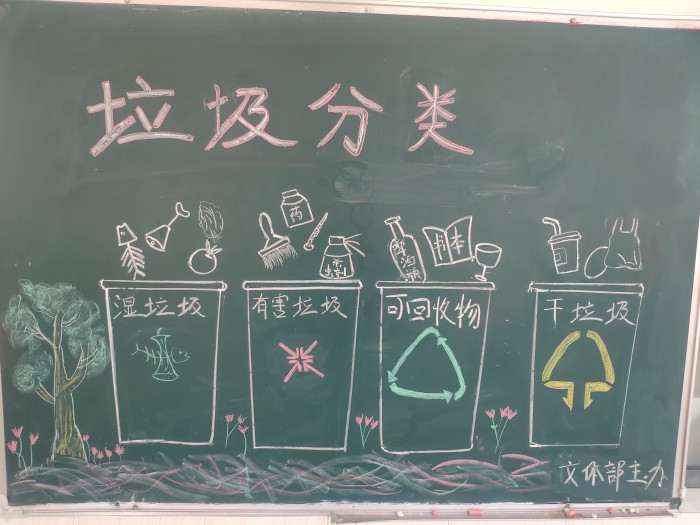 垃圾分类
药
杀虫剂
啤酒瓶
书本
湿垃圾
有害垃圾
可回收物
干垃圾
文体部主办